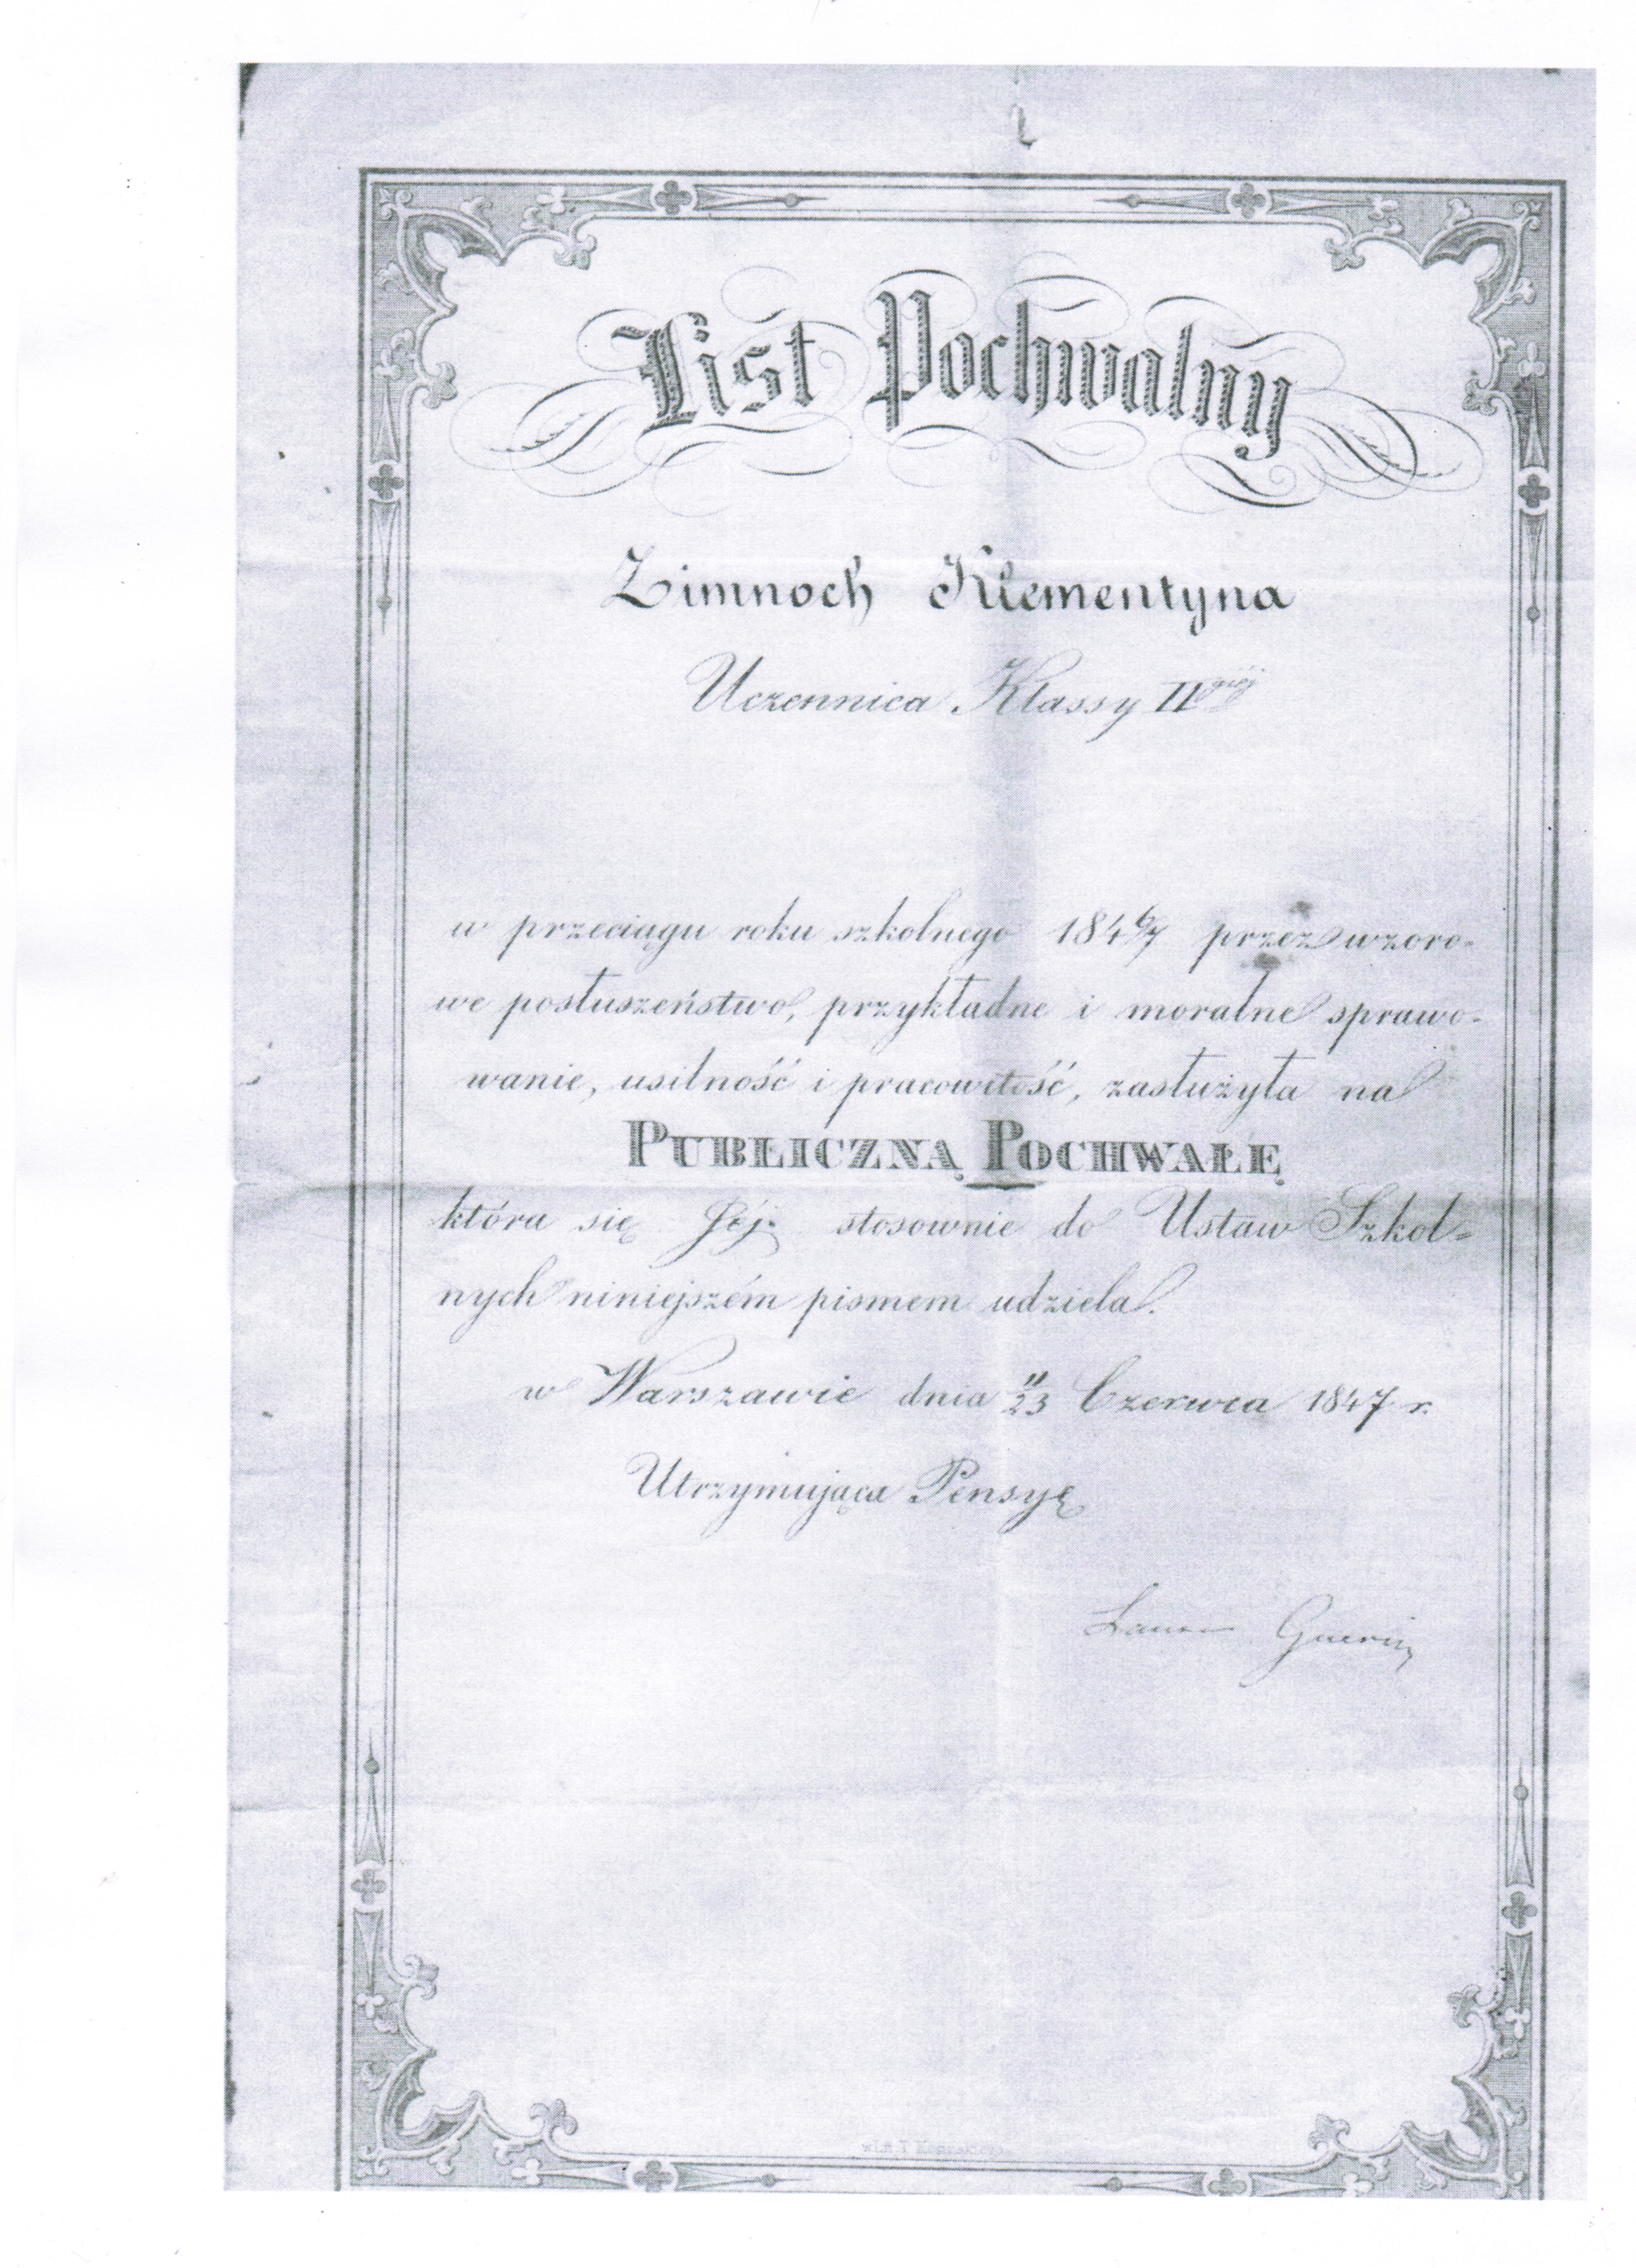 List Pochwalny
Zimnoch Klementyna
Uczennica Klassy II giéj
w przeciągu roku szkolnego 184 6/7 przez wzoro-
we posłuszeństwo, przykładne i moralne sprawo-
wanie, usilność i pracowitość, zasłużyła na
PUBLICZNĄ POCHWAŁĘ
która się Jéj stosownie do Ustaw Szkol=
nych niniejszém pismem udziela.
w Warszawie dnia 11/23 Czerwca 1847 r.
Utrzymująca Pensyę
Laura Guerin